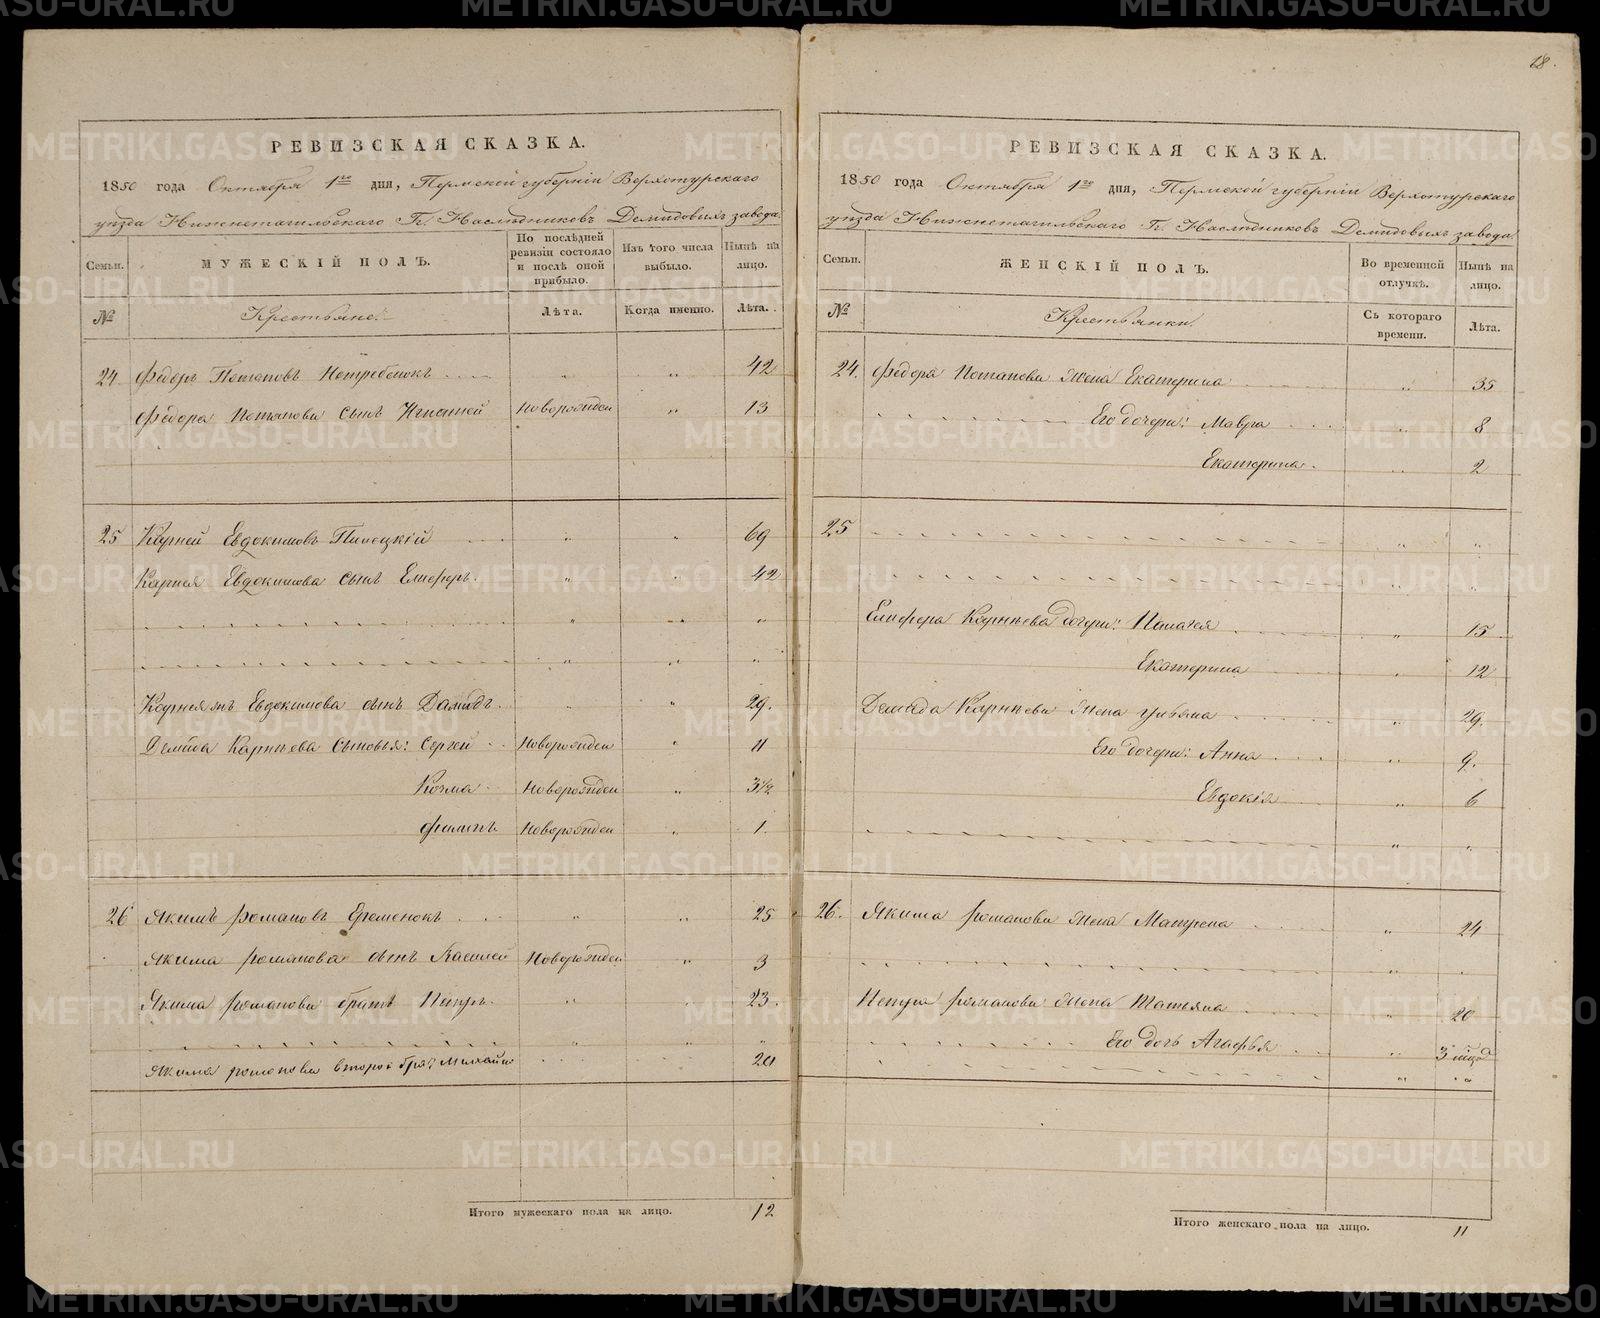 18.
РЕВИЗСКАЯ СКАЗКА.
1850 года Октября 1го дня, Пермской губерніи Верхотурскаго
уѣзда Нижнетагильскаго Гг. Наслѣдниковъ Демидовыхъ завода
Семьи. МУЖЕСКІЙ ПОЛЪ. По послѣдней ревизіи состояло и послѣ оной прибыло. Изъ того числа выбыло. Нынѣ на лицо.
№ Крестьяне. Лѣта. Когда именно. Лѣта.
24 Федоръ Потаповъ Нетребенокъ 42
Федора Потапова сынъ Игнатей Новорожден 13
25 Карней Евдокимовъ 69
Карнея Евдокимова сынъ Елиферъ. 42
Карнея Евдокимова сынъ 29.
Демида Карнѣева сыновья: Сергей Новорожден 11
Козма Новорожден 3½
Филипъ Новорожден 1.
26 Якимъ Романовъ Еременокъ 25
Якима Романова сынъ Василей Новорожден 3
Якима Романова братъ Петръ. 23.
Якима Романова второй братъ Михайло 20
Итого мужескаго пола на лицо. 12
РЕВИЗСКАЯ СКАЗКА.
1850 года Октября 1го дня, Пермской губерніи Верхотурскаго
уѣзда Нижнетагильскаго Гг. Наслѣдниковъ Демидовыхъ завода.
Семьи. ЖЕНСКІЙ ПОЛЪ. Во временной отлучкѣ. Нынѣ на лицо.
№ Крестьянки. Съ котораго времени. Лѣта.
24. Федора Потапова жена Екатерина 35
Его дочери: Мавра 8
Екатерина. 2
25
Елифера Карнѣева дочери: Палагея 15
Екатерина 12
Демида Карнѣева жена Ульяна 29.
Его дочери: Анна 9.
Евдокія 6
26. Якима Романова жена Матрена 24
Петра Романова жена Татьяна 20
Его дочь Агафья 3
Итого женскаго пола на лицо. 11
METRIKI.GASO-URAL.RU